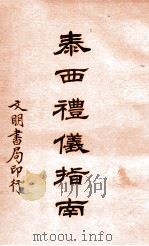 泰西禮儀指南
文明書局印行